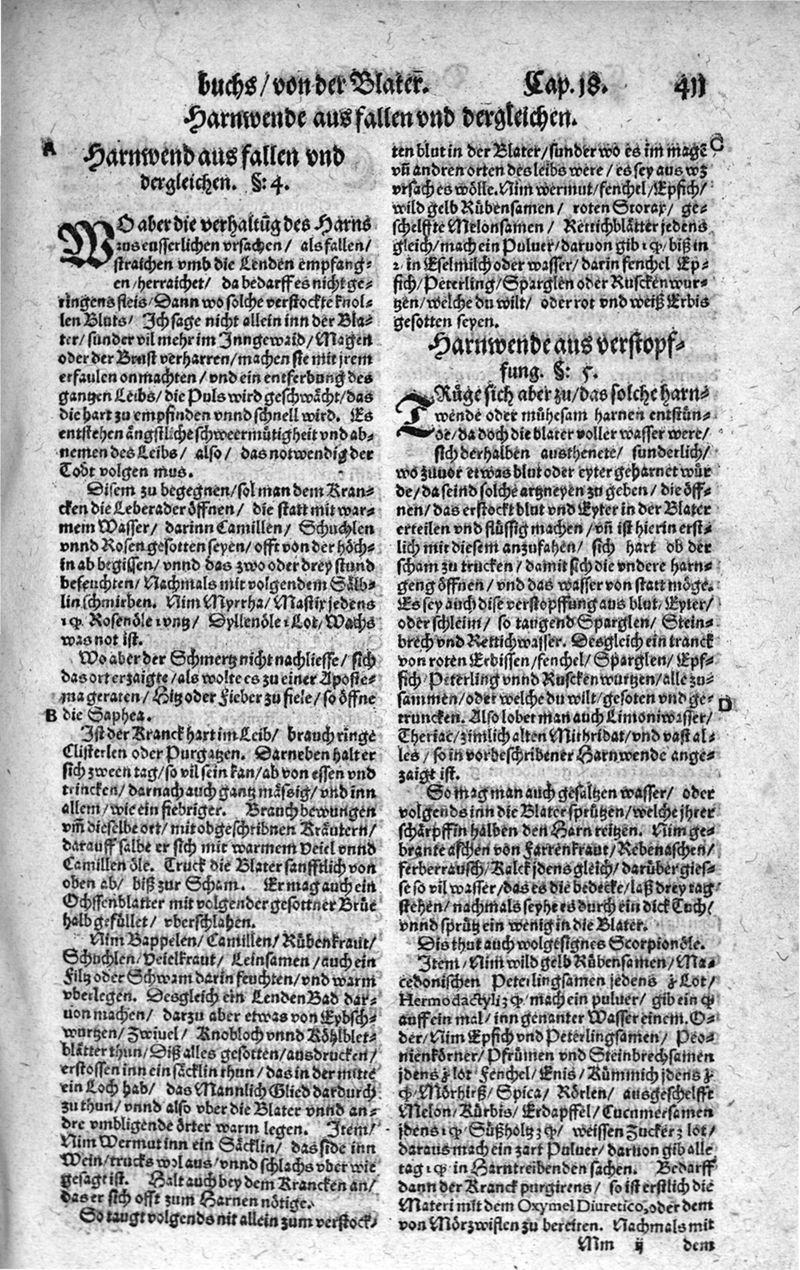 buchs / von der Blater. Cap. 18. 411
Harnwende aus fallen vnd dergleichen.
A
Harnwend aus fallen vnd
dergleichen. §: 4.
WO aber die verhaltũg des Harns
aus eusserlichen vrsachen / als fallen /
straichen vmb die Lenden empfang-
en / herraichet / da bedarff es nicht ge-
ringens fleis / Dann wo solche verstockte knol-
len Bluts / Ich sage nicht allein inn der Bla-
ter / sunder vil mehr im Inngewaid / Magen
oder der Brust verharren / machen sie mit jrem
erfaulen onmachten / vnd ein entferbung des
gantzen Leibs / die Puls wird geschwächt / das
die hart zu empfinden vnnd schnell wird. Es
entstehen ängstliche schweermütigheit vnd ab-
nemen des Leibs / also / das notwendig der
Todt volgen mus.
Disem zu begegnen / sol man dem Kran-
cken die Leberader öffnen / die statt mit war-
mem Wasser / darinn Camillen / Schuchlen
vnnd Rosen gesotten seyen / offt von der höch-
in ab begissen / vnnd das zwo oder drey stund
befeuchten / Nachmals mit volgendem Sälb-
lin schmirben. Nim Myrrha / Mastix jedens
Rosenöle vntz / Dyllenöle Lot / Wachs
was not ist.
Wo aber der Schmertz nicht nachliesse / sich
das ort erzaigte / als wolte es zu einer Aposte-
ma geraten / Hitz oder Fieber zu fiele / so öffne
B die Saphea.
Ist der Kranck hart im Leib / brauch ringe
Clisterlen oder Purgatzen. Darneben halt er
sich zween tag / so vil sein kan / ab von essen vnd
trincken / darnach auch gantz mässig / vnd inn
allem / wie ein fiebriger. Brauch bewungen
vm̃ dieselbe ort / mit obgeschribnen Kräutern /
darauff salbe er sich mit warmem Veiel vnnd
Camillen öle. Truck die Blater sanfftlich von
oben ab / biß zur Scham. Er mag auch ein
Ochssenblatter mit volgender gesottner Brüe
halb gefüllet / vberschlahen.
Nim Bappelen / Camillen / Rübenkraut /
Schuchlen / Veielkraut / Leinsamen / auch ein
Filtz oder Schwam darin feuchten / vnd warm
vberlegen. Desgleich ein Lenden Bad dar-
uon machen / darzu aber etwas von Eybsch-
wurtzen / Zwiuel / Knobloch vnnd Köhlblet-
blätter thun / Diß alles gesotten / ausdrucken /
erstossen inn ein säcklin thun / das in der mitte
ein Loch hab / das Mannlich Glied dardurch
zu thun / vnnd also vber die Blater vnnd an-
dre vmbligende örter warm legen. Item /
Nim Wermut inn ein Säcklin / das side inn
Wein / trucks wol aus / vnnd schlachs vber wie
gesagt ist. Halt auch bey dem Krancken an /
das er sich offt zum Harnen nötige.
So taugt volgends nit allein zum verstock-
ten blut in der Blater / sunder wo es im magẽ C
vñ andren orten des leibs were / es sey aus wz
vrsach es wölle. Nim wermut / fenchel / Epfich /
wild gelb Rübensamen / roten Storax / ge-
schelffte Melonsamen / Rettichblätter jedens
gleich / mach ein Puluer / daruon gib biß in
in Eselmilch oder wasser / darin fenchel Ep-
fich / Peterling / Sparglen oder Rusckenwur-
tzen / welche du wilt / oder rot vnd weiß Erbis
gesotten seyen.
Harnwende aus verstopf-
fung. §: 5.
TRüge sich aber zu / das solche harn-
wende oder mühesam harnen entstün-
de / da doch die blater voller wasser were /
sich derhalben austhenete / sunderlich /
wo zuuor etwas blut oder eyter geharnet wür
de / da seind solche artzneyen zu geben / die öff-
nen / das erstockt blut vnd Eyter in der Blater
erteilen vnd flüssig machen / vñ ist hierin erst-
lich mit diesem anzufahen / sich hart ob der
scham zu trucken / damit sich die vndere harn-
geng öffnen / vnd das wasser von statt möge.
Es sey auch dise verstopffung aus blut / Eyter /
oder schleim / so taugend Sparglen / Stein-
brech vnd Rettichwasser. Desgleich ein tranck
von roten Erbissen / fenchel / Sparglen / Epf-
fich / Peterling vnnd Rusckenwurtzen / alle zu-
sammen / oder welche du wilt / gesoten vnd ge- D
truncken. Also lobet man auch Limoniwasser /
Theriac / zimlich alten Mithridat / vnd vast al-
les / so in vordeschribener Harnwende ange-
zaigt ist.
So mag man auch gesaltzen wasser / oder
volgends inn die Blater sprützen / welche jhrer
schärpffin halben den Harn reitzen. Nim ge-
brante aschen von Farrenkraut / Rebenaschen /
ferberrausch / Kalck jdens gleich / darüber gies-
se so vil wasser / das es die bedecke / laß drey tag
stehen / nachmals seyhe es durch ein dick Tuch /
vnnd sprütz ein wenig in die Blater.
Dis thut auch wolgesignes Scorpionöle.
Item / Nim wild gelb Rübensamen / Ma-
cedonischen Peterlingsamen jedens Lot /
Hermodactyli mach ein puluer / gib ein
auff ein mal / inn genanter Wasser einem. O-
der / Nim Epfich vnd Peterlingsamen / Peo-
nienkörner / Pfrümen vnd Steinbrechsamen
jdens lot Fenchel / Enis / Kümmich jdens
Mörhleß / Spica / Rörlen / ausgeschelffte
Melon / Kürbis / Erdapffel / Cucumersamen
jdens Süßholtz weissen Zucker lot /
daraus mach ein zart Puluer / daruon gib alle
tag in Harntreibenden sachen. Bedarff
dann der Kranck purgirens / so ist erstlich die
Materi mit dem Oxymel Diuretico, oder dem
von Mörzwiflen zu bereiten. Nachmals mit
Mm ij dem